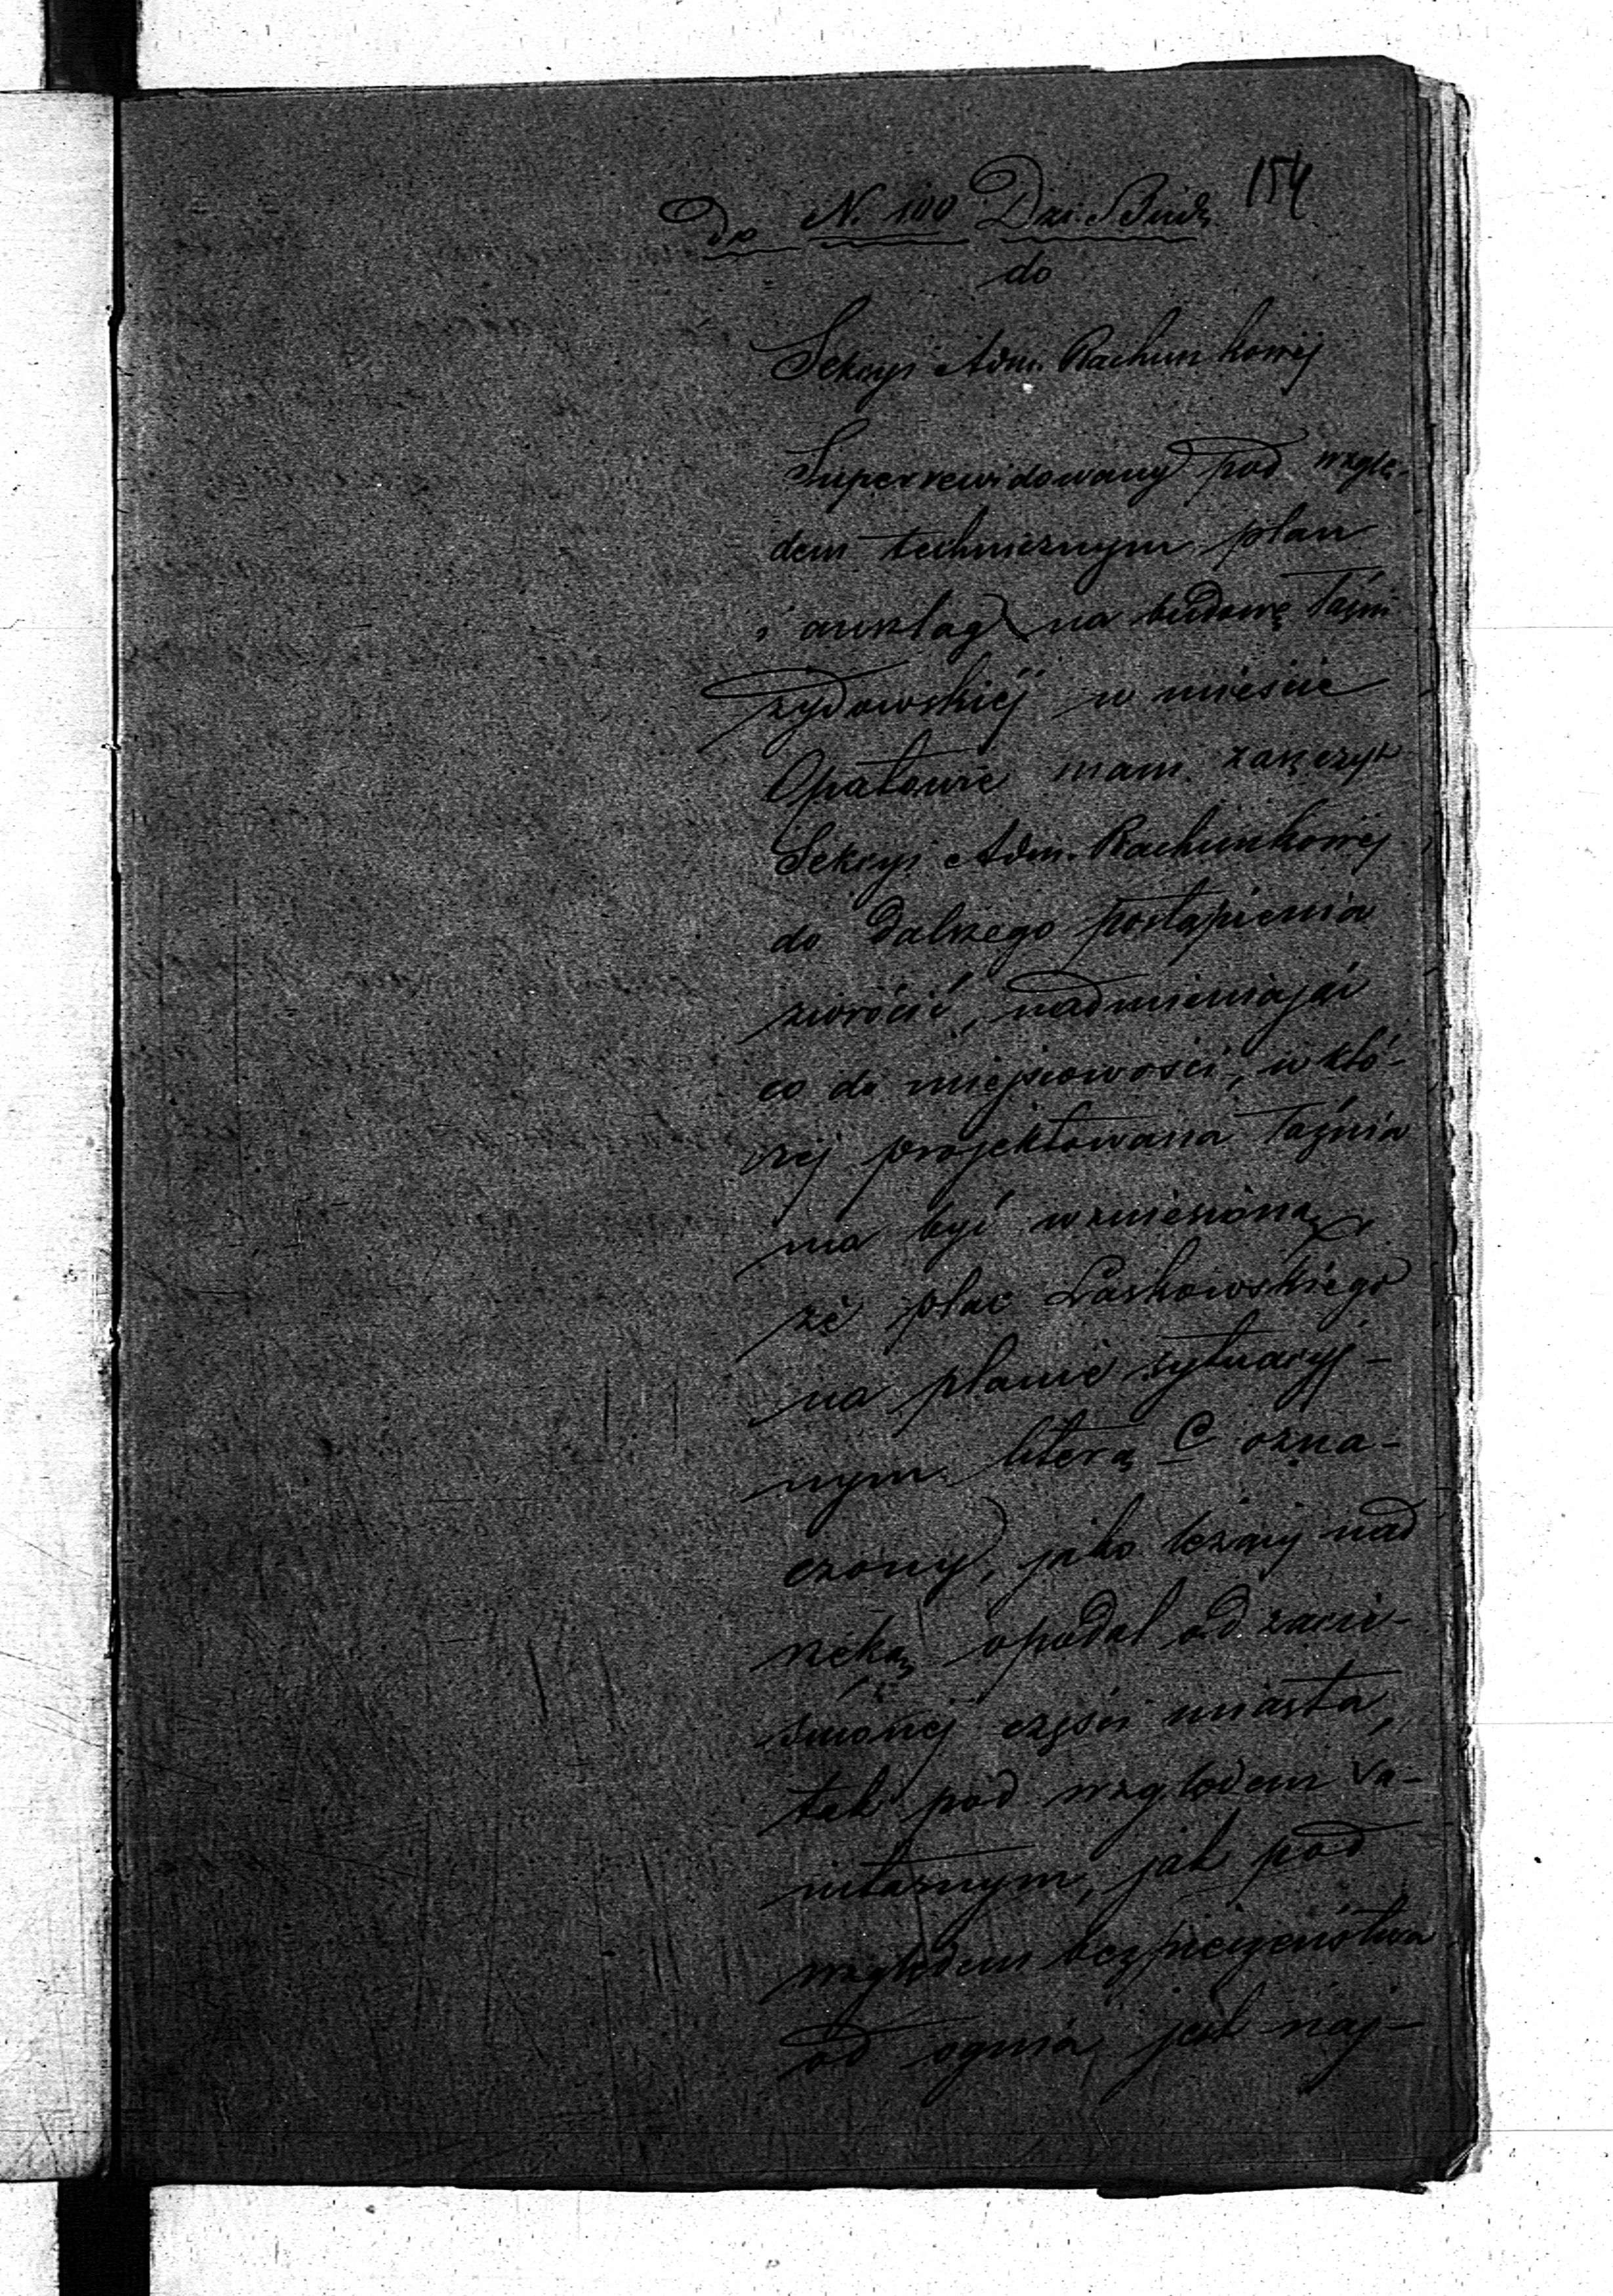 154
Do N. 100 Dzi. Bud.
do
Sekcyi Adm. Rachunkowéj
Superrewidowany pod wzglę-
dem technicznym plan
i anszlag na budowę łaźni
żydowskiéj w mieście
Opatowie mam zaszczyt
Sekcyi Adm. Rachunkowéj
do dalszego postąpienia
zwrócić, nadmieniając
co do miejscowości, w któ-
réj projektowana łaźnia
ma być wzniesioną,
że plac Laskowskiego
na planie sytuacyj-
nym literą C ozna-
czony, jako leżący nad
rzéką opodal od zacie-
śnionéj części miasta,
tak pod względem sa-
nitarnym, jak pod
względem bezpieczeństwa
od ognia jest naj-